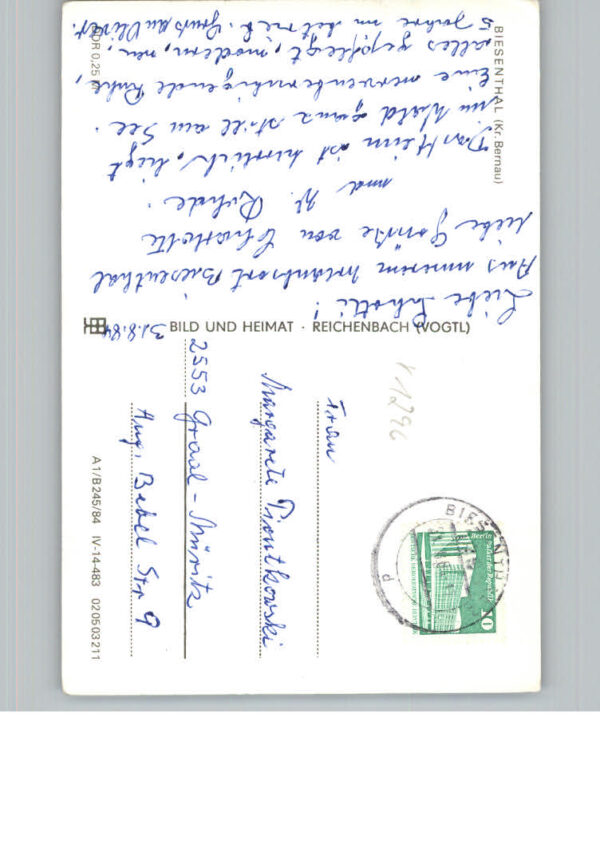 BIESENTHAL (Kr. Bernau)
31.8.84
Liebe Schotti!
Aus unserem Urlaubsort Biesenthal
liebe Grüße von Charlotte
und W. Rohde.
Das Heim ist herrlich, liegt
im Wald ganz still am See.
Eine nervenberuhigende Ruhe,
alles gepflegt, modern, neu,
5 Jahre in betrieb. Gruß an
BILD UND HEIMAT · REICHENBACH (VOGTL)
A1/B245/84 IV-14-483 020503211
V 1296
Frau
Margarete Piontkowski
2553 Graal-Müritz
Aug. Bebel Str 9
BIESENTHAL
Berlin, Palast der Republik
10